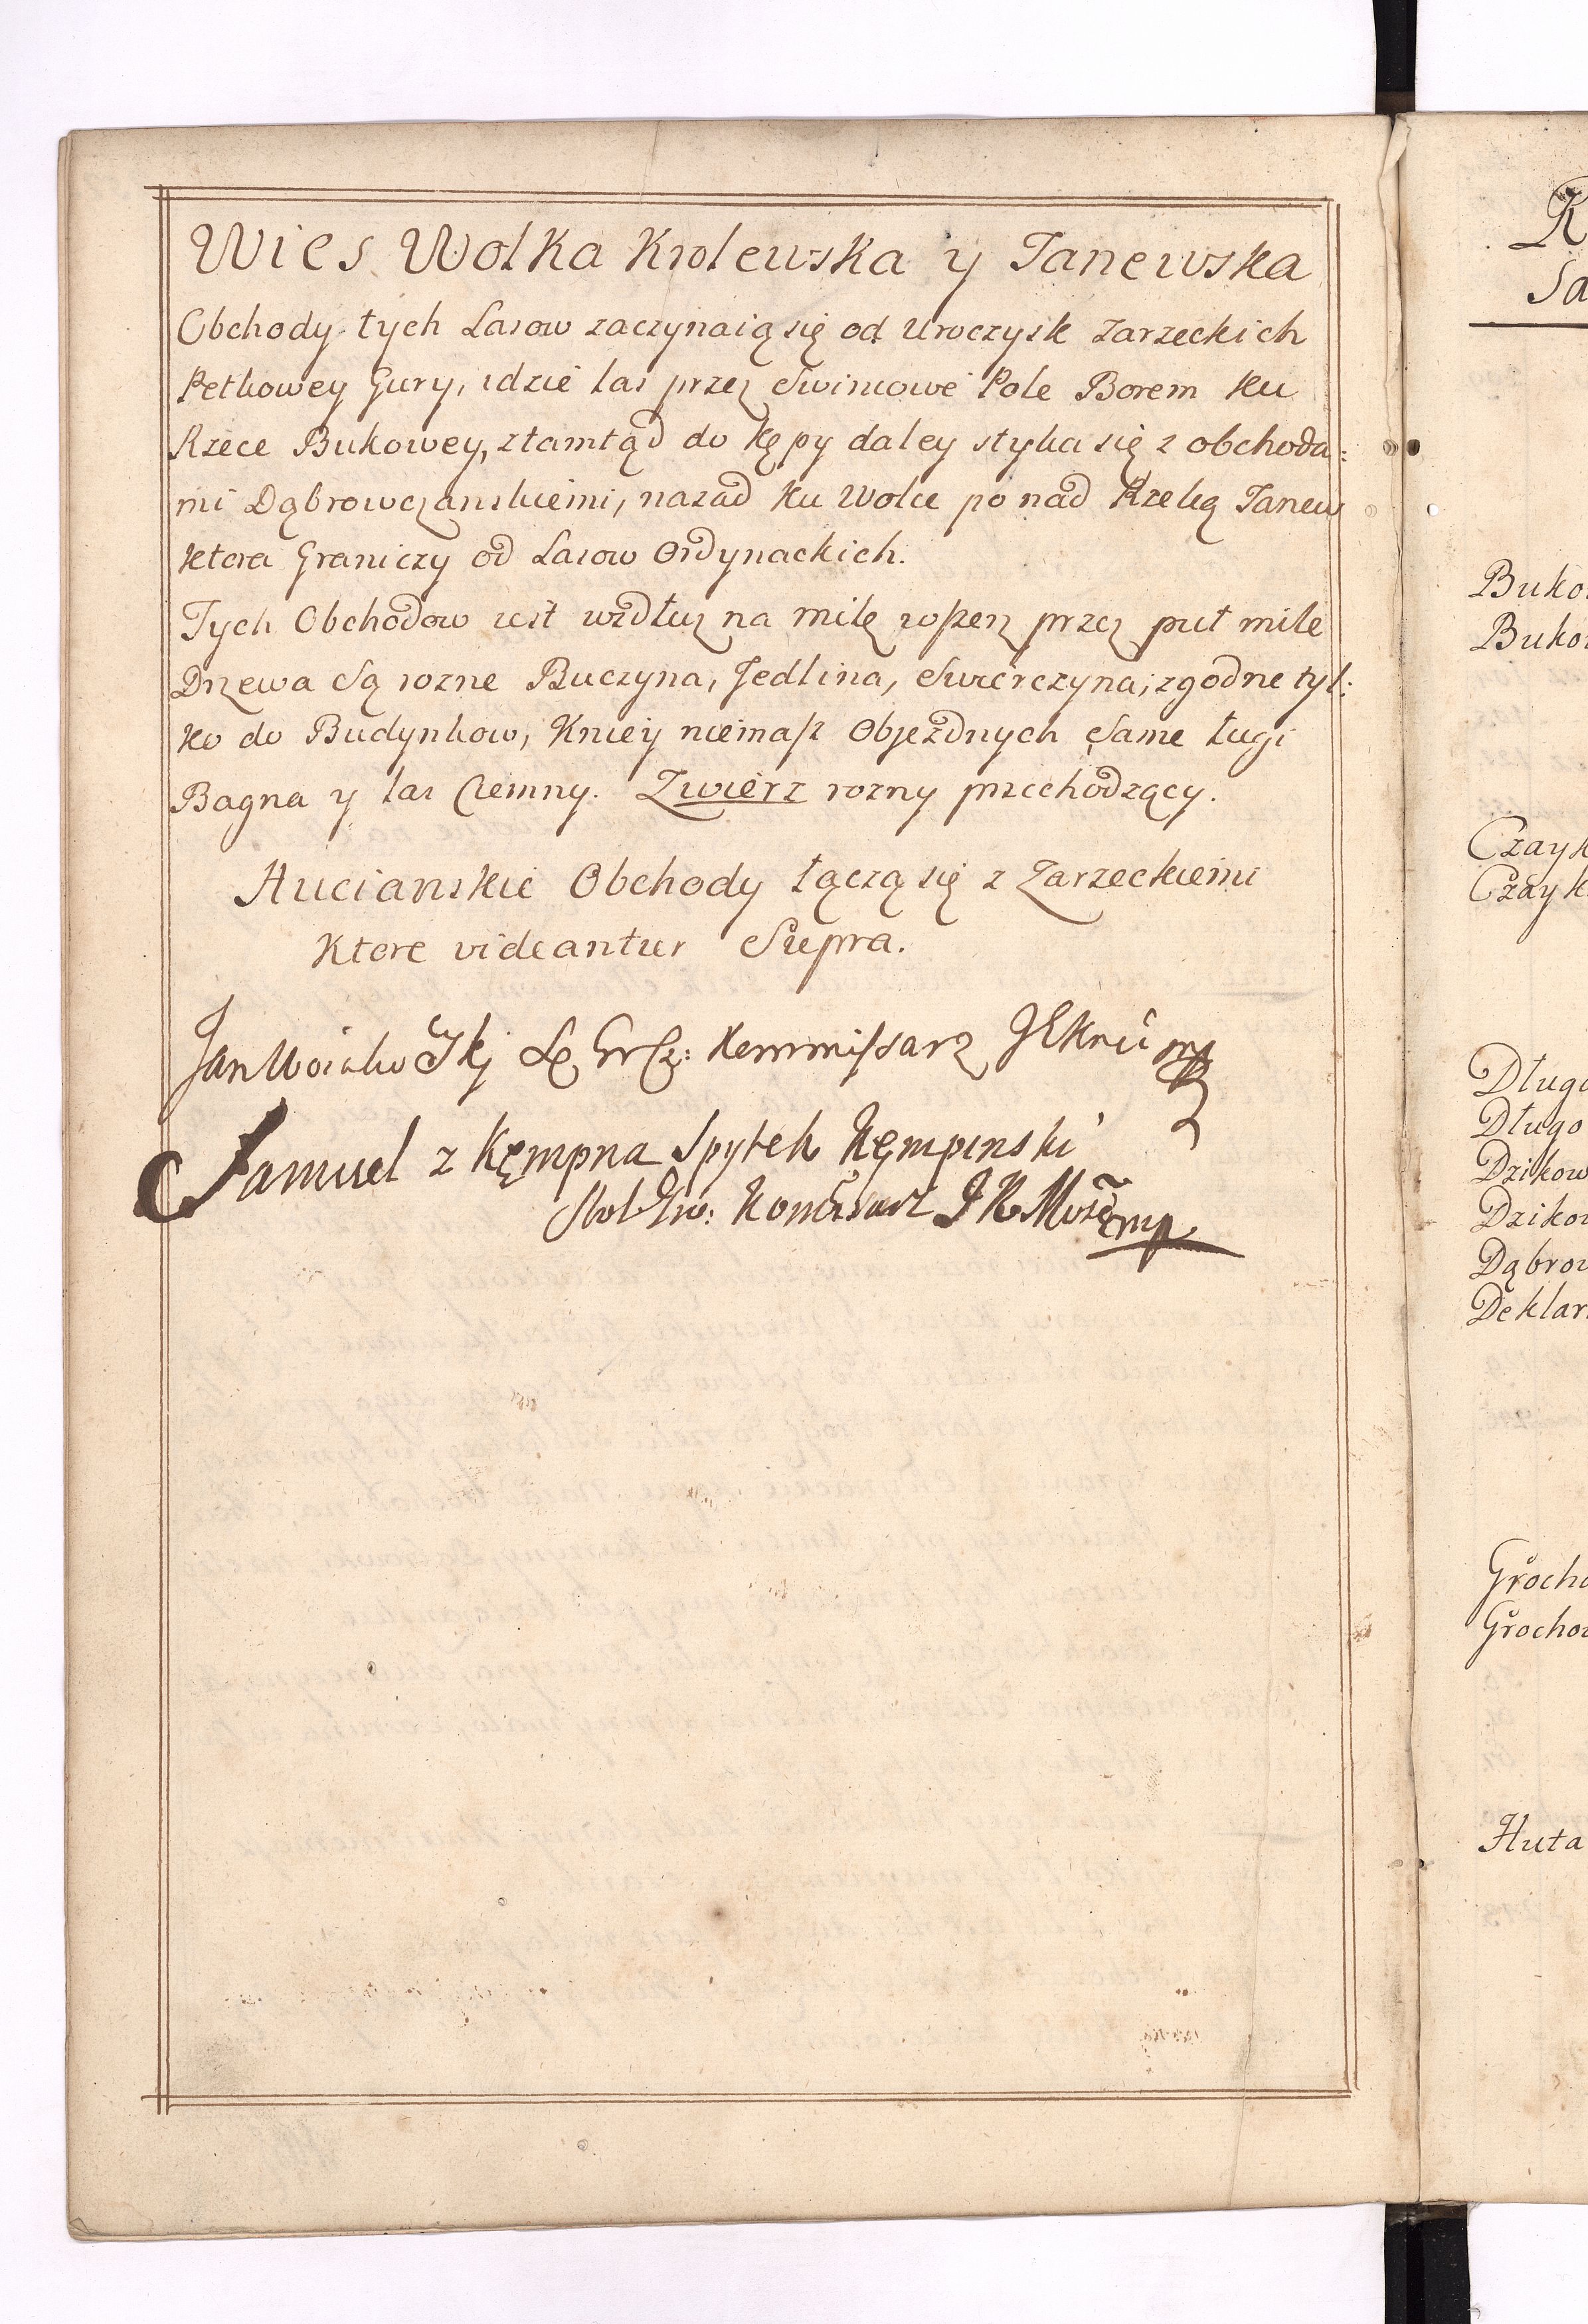 Wies Wolka Krolewska y Tanewska
Obchody tych Lasow zaczynaią się od Uroczysk Zarzeckich
Petkowey Gury, idzie las przez Swiniowe Pole Borem ku
Rzece Bukowey, ztamtąd do Kępy daley styka się z obchoda:
mi Dąbrowczanskiemi, nazad ku Wolce po nad Rzeką Tanew
ktora Graniczy od Lasow Ordynackich.
Tych Obchodow iest wzdłuz na milę wszerz przez puł mile
Drzewa Są rozne Buczyna, Jedlina, Swierczyna, zgodne tyl:
ko do Budynkow, Kniey niemasz Objezdnych Same Ługi
Bagna y las Ciemny. Zwierz rozny przechodzący.
Hucianskie Obchody łączą się z Zarzeckiemi
Ktore videantur Supra.
Jan Kommissarz
Samuel z Kęmpna Spytek Kęmpinski
mp
R
Sa
Buko
Buko
Czayk
Czayk
Długo
Długo
Dzikow
Dzikow
Dąbrow
Deklar
Grocho
Grochow
Huta